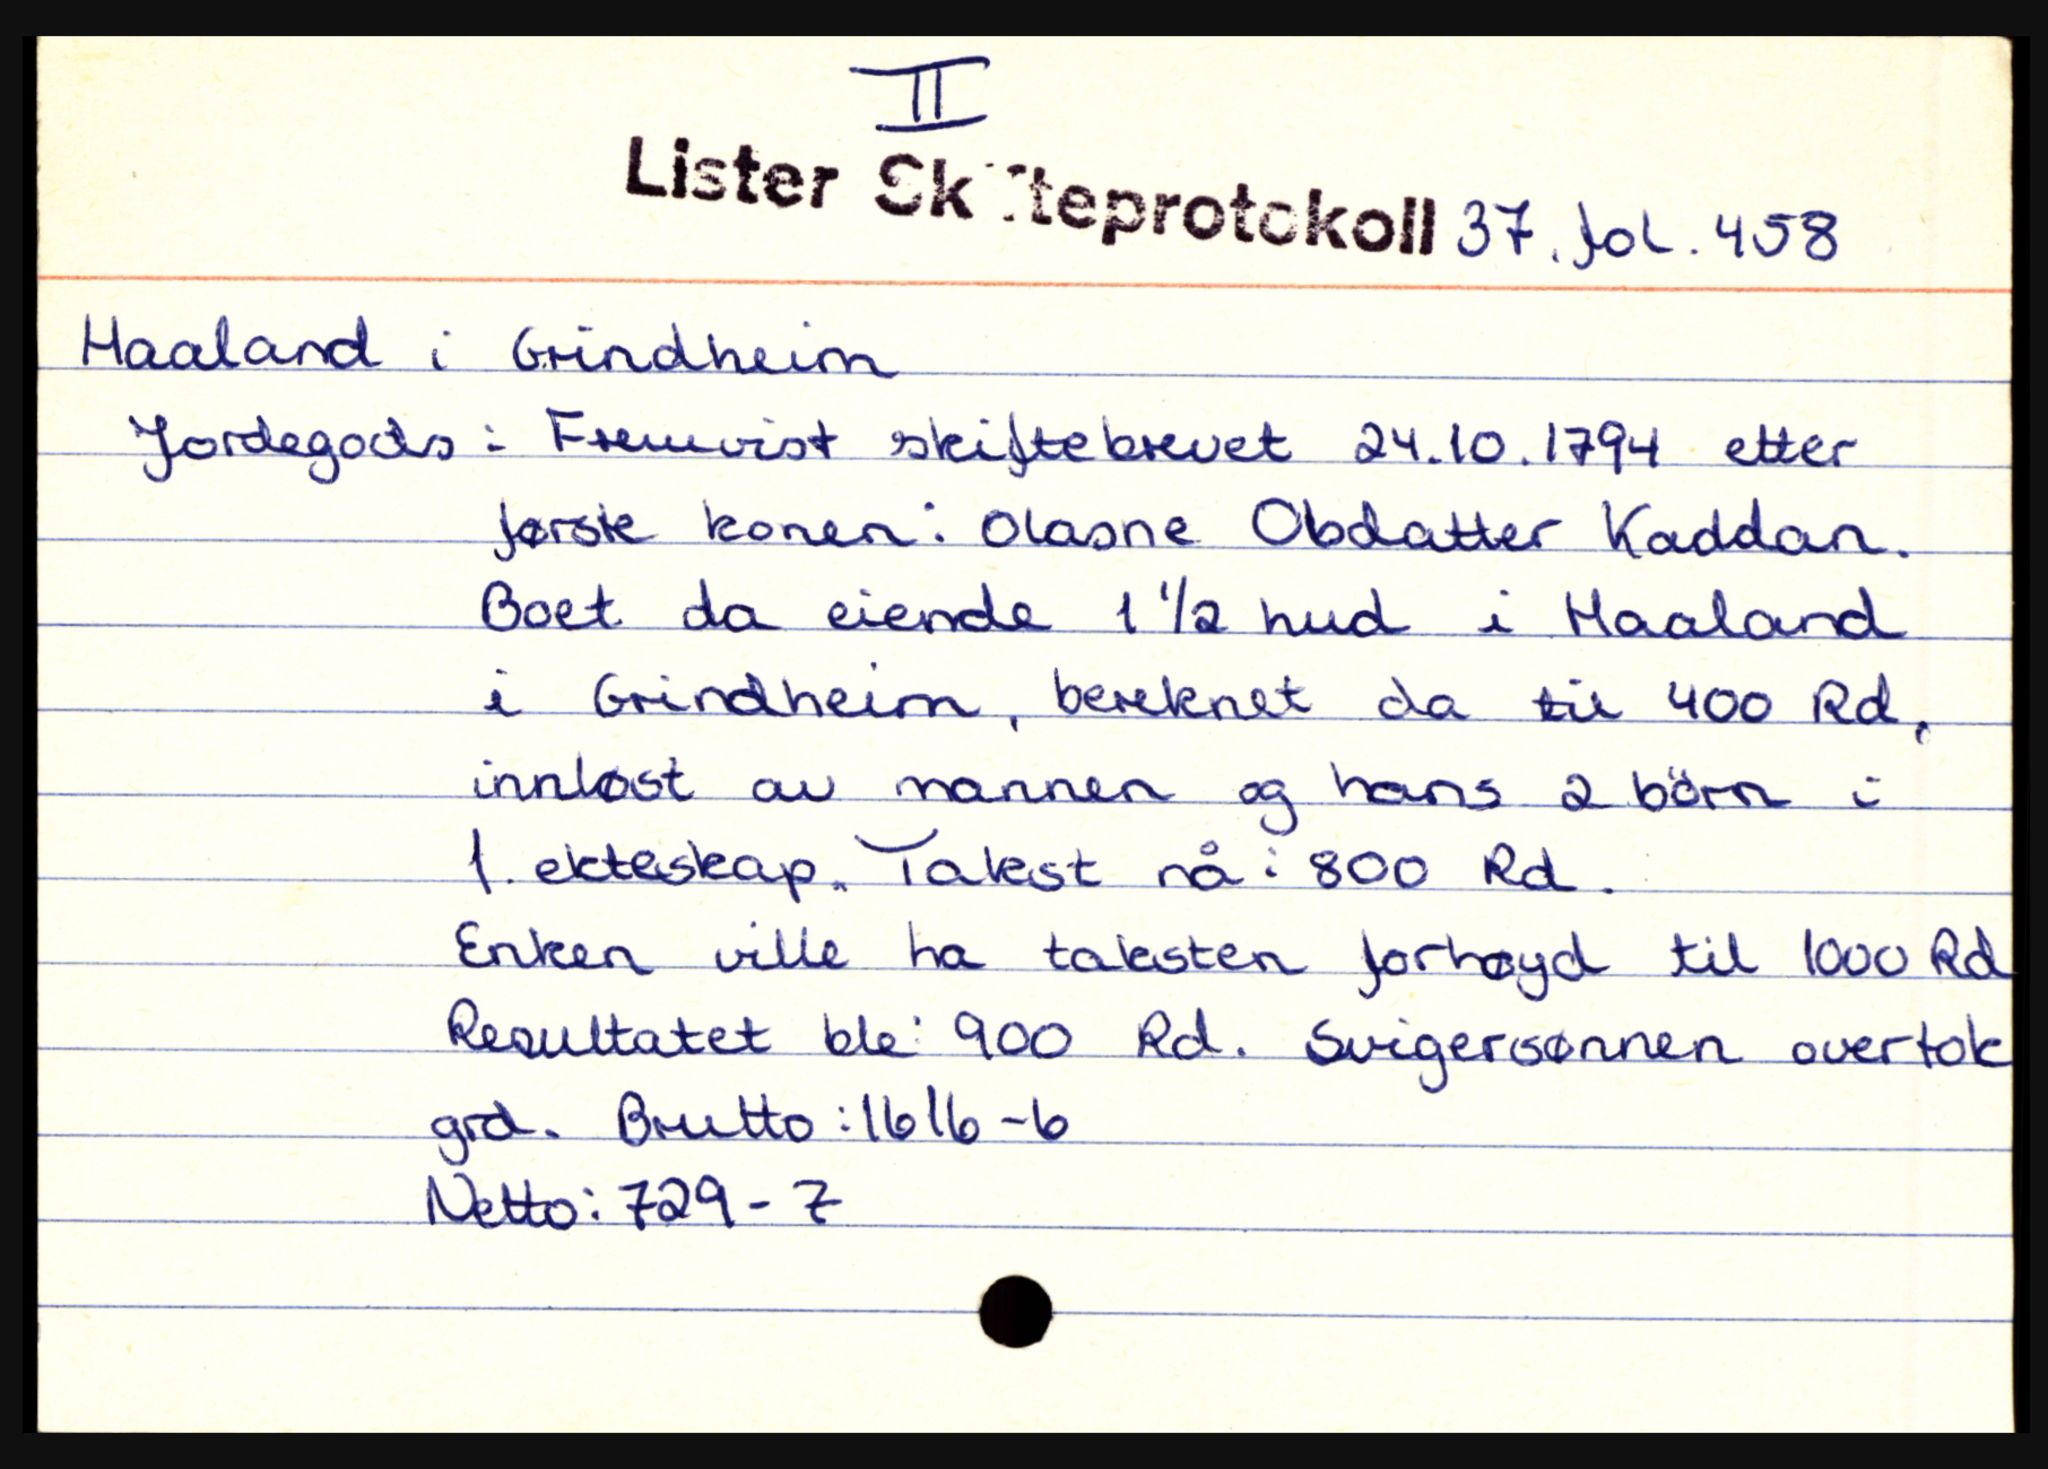 II
Lister Skifteprotokoll 37. fol. 458
Haaland i Grindheim
Jordegods: Fremvist skiftebrevet 24.10.1794 etter
første konen: Olasne Obdatter Kaddan.
Boet da eiende 1 1/2 hud i Haaland
i Grindheim, bereknet da til 400 Rd,
innløst av mannen og hans 2 börn i
1. ekteskap. Takst nå: 800 Rd.
Enken ville ha taksten forhøyd til 1000 Rd
Resultatet ble: 900 Rd. Svigersønnen overtok
grd. Brutto: 1616-6
Netto: 729-7